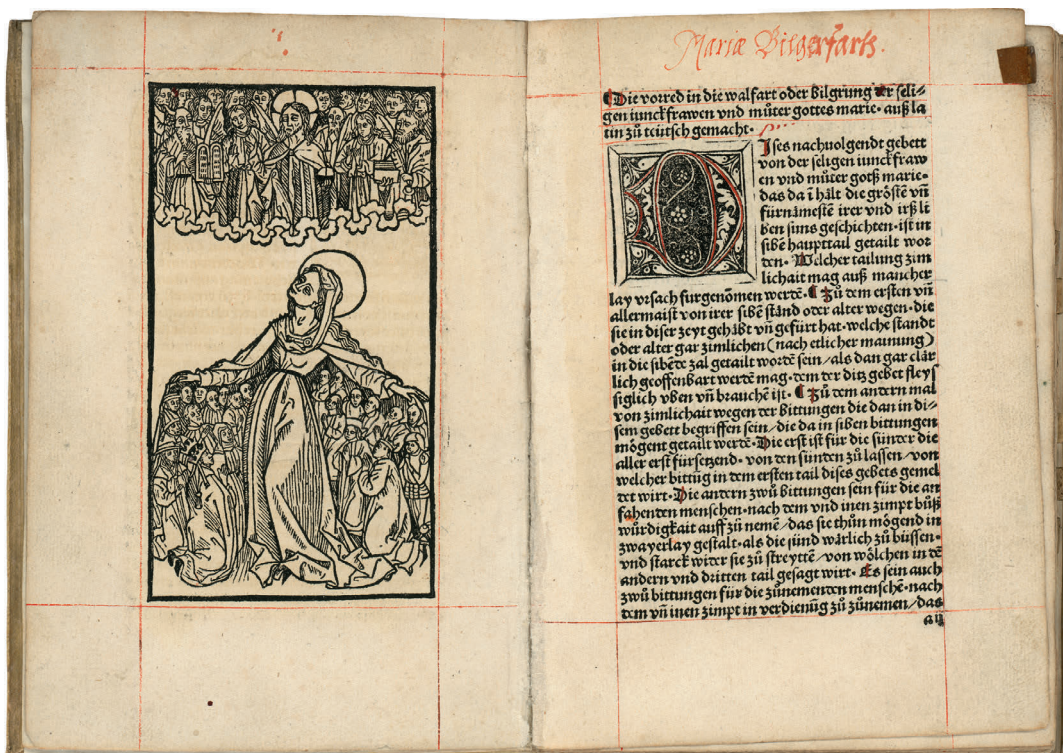 Mariæ Bilgerfarts.
¶Die vorred in die walfart oder bilgrung der seli⸗
gen iunckfrawen vnd můter gottes marie· auß la
tin zů teütsch gemacht·
DIses nachuolgendt gebett
von der seligen iunckfraw
en vnd můter gotß marie·
das da ĩ hålt die gröstẽ vñ
fürnåmestẽ irer vnd irß li
ben suns geschichten·ist in
sibẽ haupttail getailt wor
den· Welcher tailung zim
lichait mag auß mancher
lay vrsach furgenõmen werdẽ·¶Zů dem ersten vñ
allermaist von irer sibẽ stånd oder alter wegen·die
sie in diser zeyt gehåbt vñ gefürt hat·welche standt
oder alter gar zimlichen (nach etlicher mainung)
in die sibẽde zal getailt wordẽ sein/als dan gar clår
lich geoffenbart werdẽ mag·dem der ditz gebet fleys
siglich vben vñ brauchẽ ist·¶Zů dem andern mal
von zimlichait wegen der bittungen die dan in di⸗
sem gebett begriffen sein/die da in siben bittungen
mögent getailt werdẽ·Die erst ist für die sünder die
aller erst fürsetzend·von den sünden zů lassen/von
welcher bittũg in dem ersten tail dises gebets gemel
det wirt·Die andern zwů bittungen sein für die an
fahenden menschen·nach dem vnd inen zimpt bůß
würdigkait auff zů nemẽ/das sie thůn mögend in
zwayerlay gestalt·als die sünd wårlich zů büssen·
vnd starck wider sie zů streyttẽ/von wölchen in dẽ
andern vnd dritten tail gesagt wirt· Es sein auch
zwů bittungen für die zůnemenden menschẽ·nach
dem vñ inen zimpt in verdienũg zů zůnemen/das
a ij